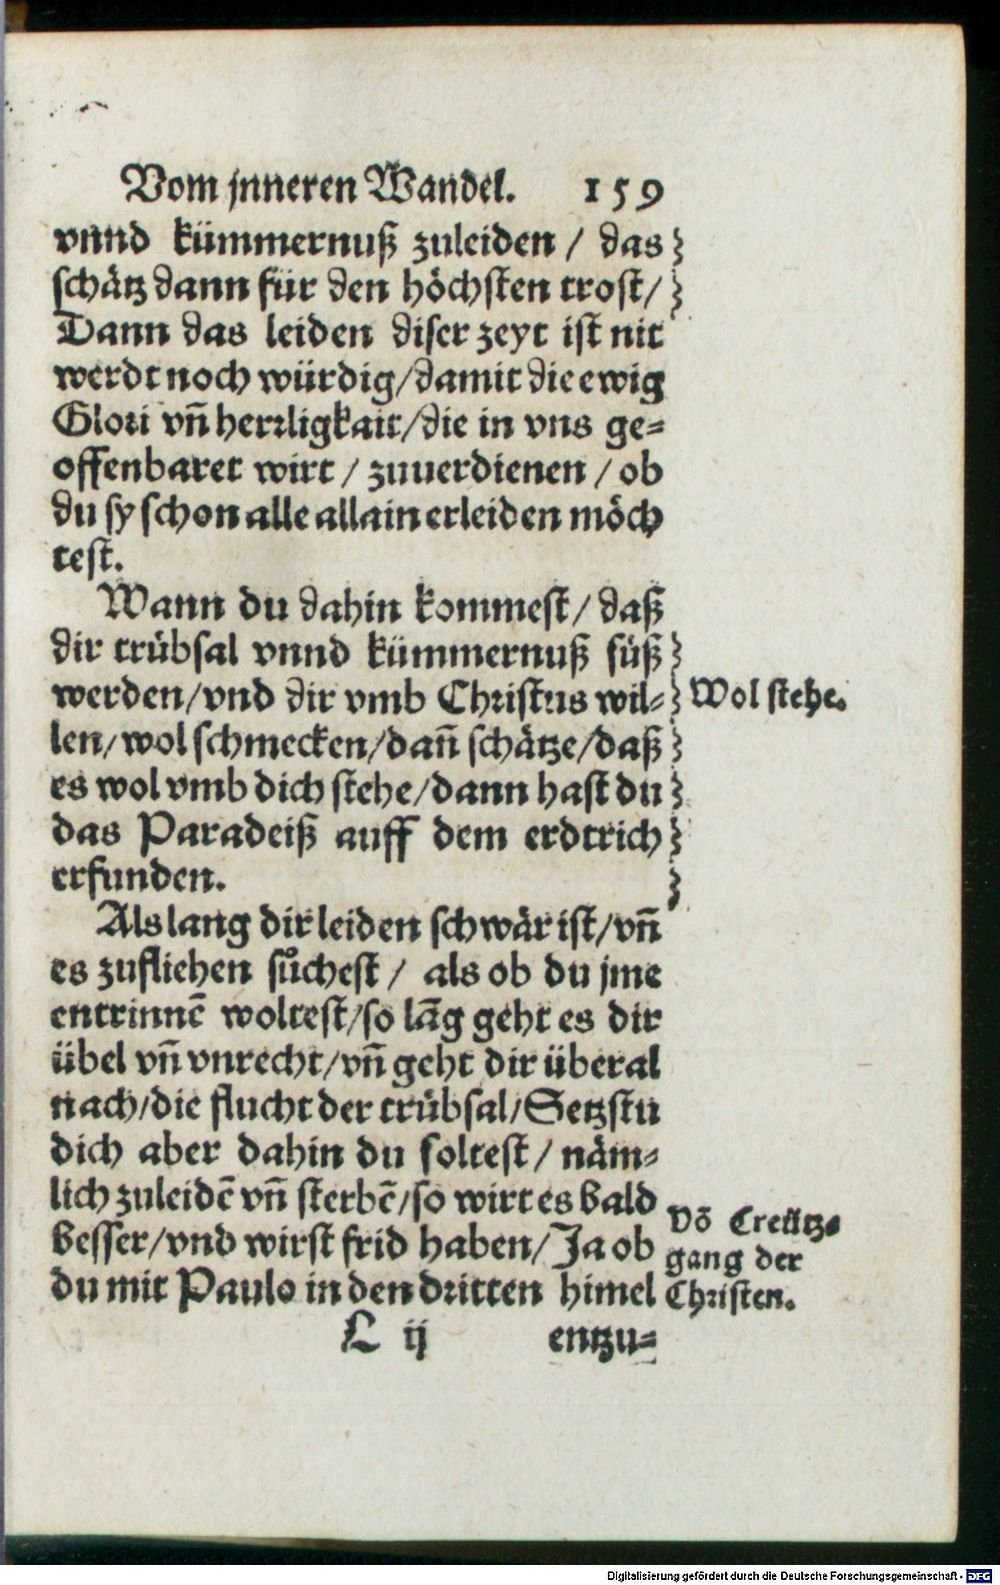 Vom jnneren Wandel. 159
vnnd kümmernuß zuleiden / das
schätz dann für den höchsten trost /
Dann das leiden diser zeyt ist nit
werdt noch würdig / damit die ewig
Glori vñ herrligkait / die in vns ge=
offenbaret wirt / zuuerdienen / ob
du sy schon alle allain erleiden möch
test.
Wann du dahin kommest / daß
dir trübsal vnnd kümmernuß süß
werden / vnd dir vmb Christus wil=
Wol stehe.
len / wol schmecken / dañ schätze / daß
es wol vmb dich stehe / dann hast du
das Paradeiß auff dem erdtrich
erfunden.
Als lang dir leiden schwär ist / vñ
es zufliehen sůchest / als ob du jme
entrinnē woltest / so lãg geht es dir
übel vñ vnrecht / vñ geht dir überal
nach / die flucht der trübsal / Setzstu
dich aber dahin du soltest / näm=
lich zuleidē vñ sterbē / so wirt es bald
besser / vnd wirst frid haben / Ja ob
du mit Paulo in den dritten himel
Võ Creütz=
gang der
Christen.
L ij entzu=
Digitalisierung gefördert durch die Deutsche Forschungsgemeinschaft - DFG